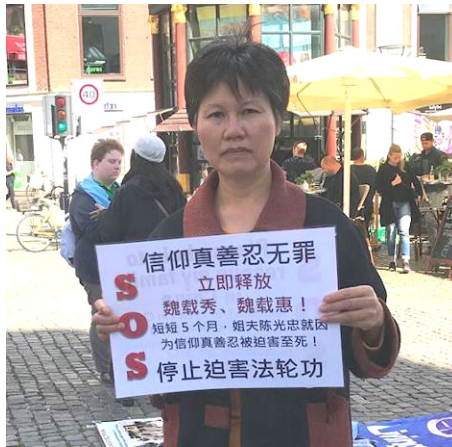 40
SOS
信仰真善忍无罪
立即释放
魏载秀、魏载惠！
短短5个月，姐夫陈光忠就因
为信仰真善忍被迫害至死！
停止迫害法轮功